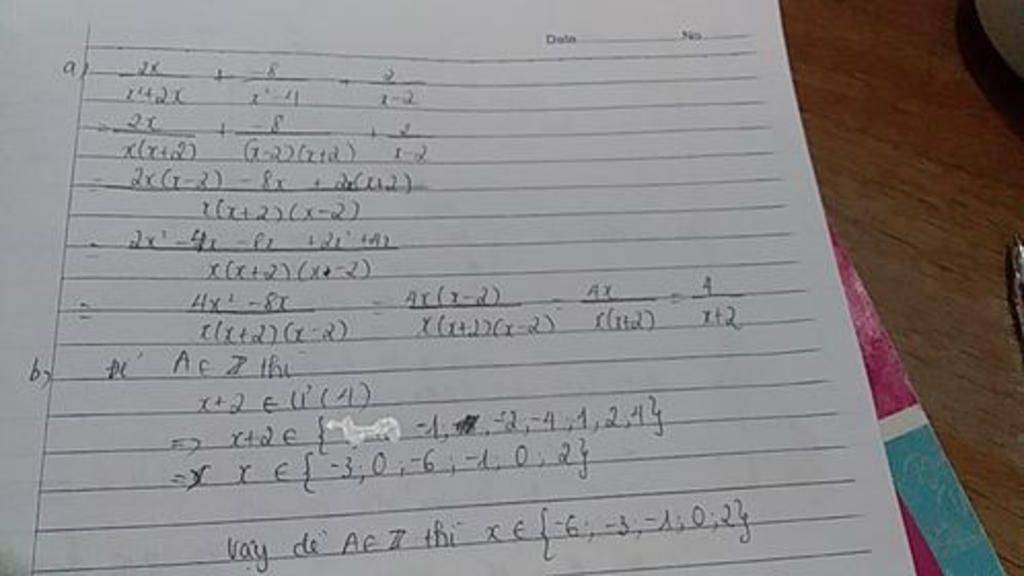 Date No
a) 2x/x²+2x + -8/x²-4 + 2/x-2
= 2x/x(x+2) + -8/(x-2)(x+2) + 2/x-2
= 2x(x-2) - 8x + 2x(x+2)/x(x+2)(x-2)
= 2x² - 4x - 8x + 2x² + 4x/x(x+2)(x-2)
= 4x² - 8x/x(x+2)(x-2) = 4x(x-2)/x(x+2)(x-2) = 4x/x(x+2) = 4/x+2
b) Để A ∈ Z thì
x+2 ∈ Ư(4)
=> x+2 ∈ { -1, -2, -4, 1, 2, 4}
=> x ∈ { -3; 0; -6; -1; 0; 2}
Vậy để A ∈ Z thì x ∈ {-6; -3; -1; 0; 2}